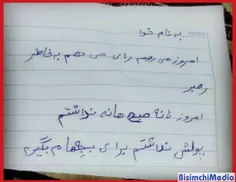 به نام خدا
امروز می روم رای می دهم به خاطر
رهبر
امروز نانه صبحانه نداشتم
پولش نداشتم برای بچهام بگیرم
BisimchiMedia